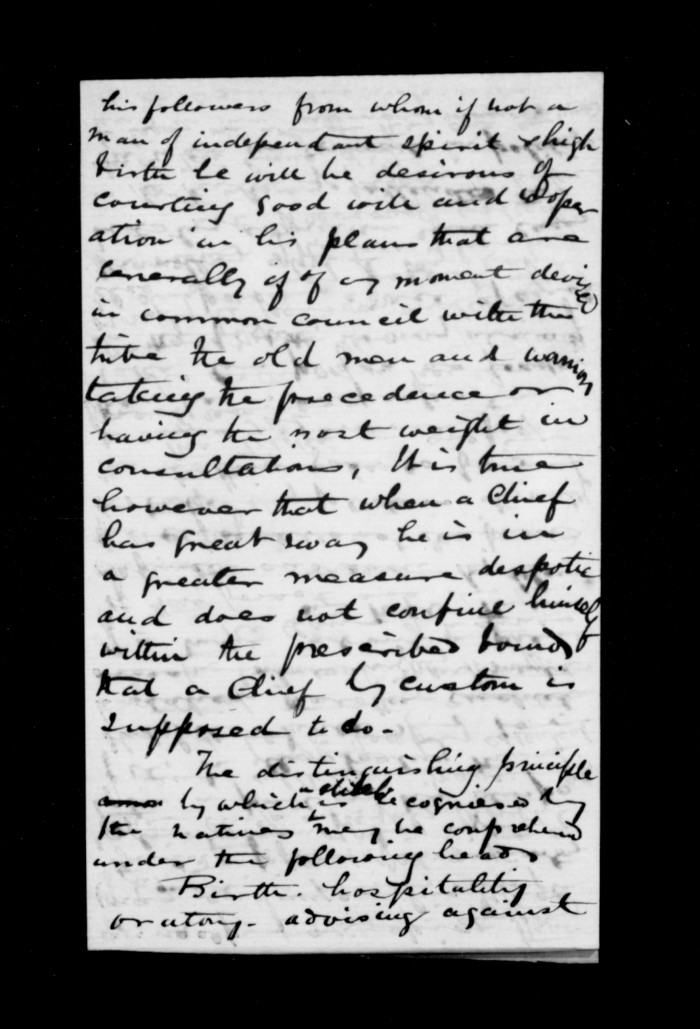 his followers from whom if not a
man of independant spirit & high
birth he will be desirous of
courting good will and cooper
ation in his plans that are
generally if of any moment devised
in common council with the
tribe the old men and warriors
taking the precedence or
having the most weight in
consultations, It is true
however that when a Chief
has great sway he is in
a greater measure despotic
and does not confine himself
within the prescribed bounds
that a Chief by custom is
supposed to do-
The distinguishing principle
by which is recognised by
the natives may be comprehend
under the following heads
Birth. hospitality
oratory- advising against